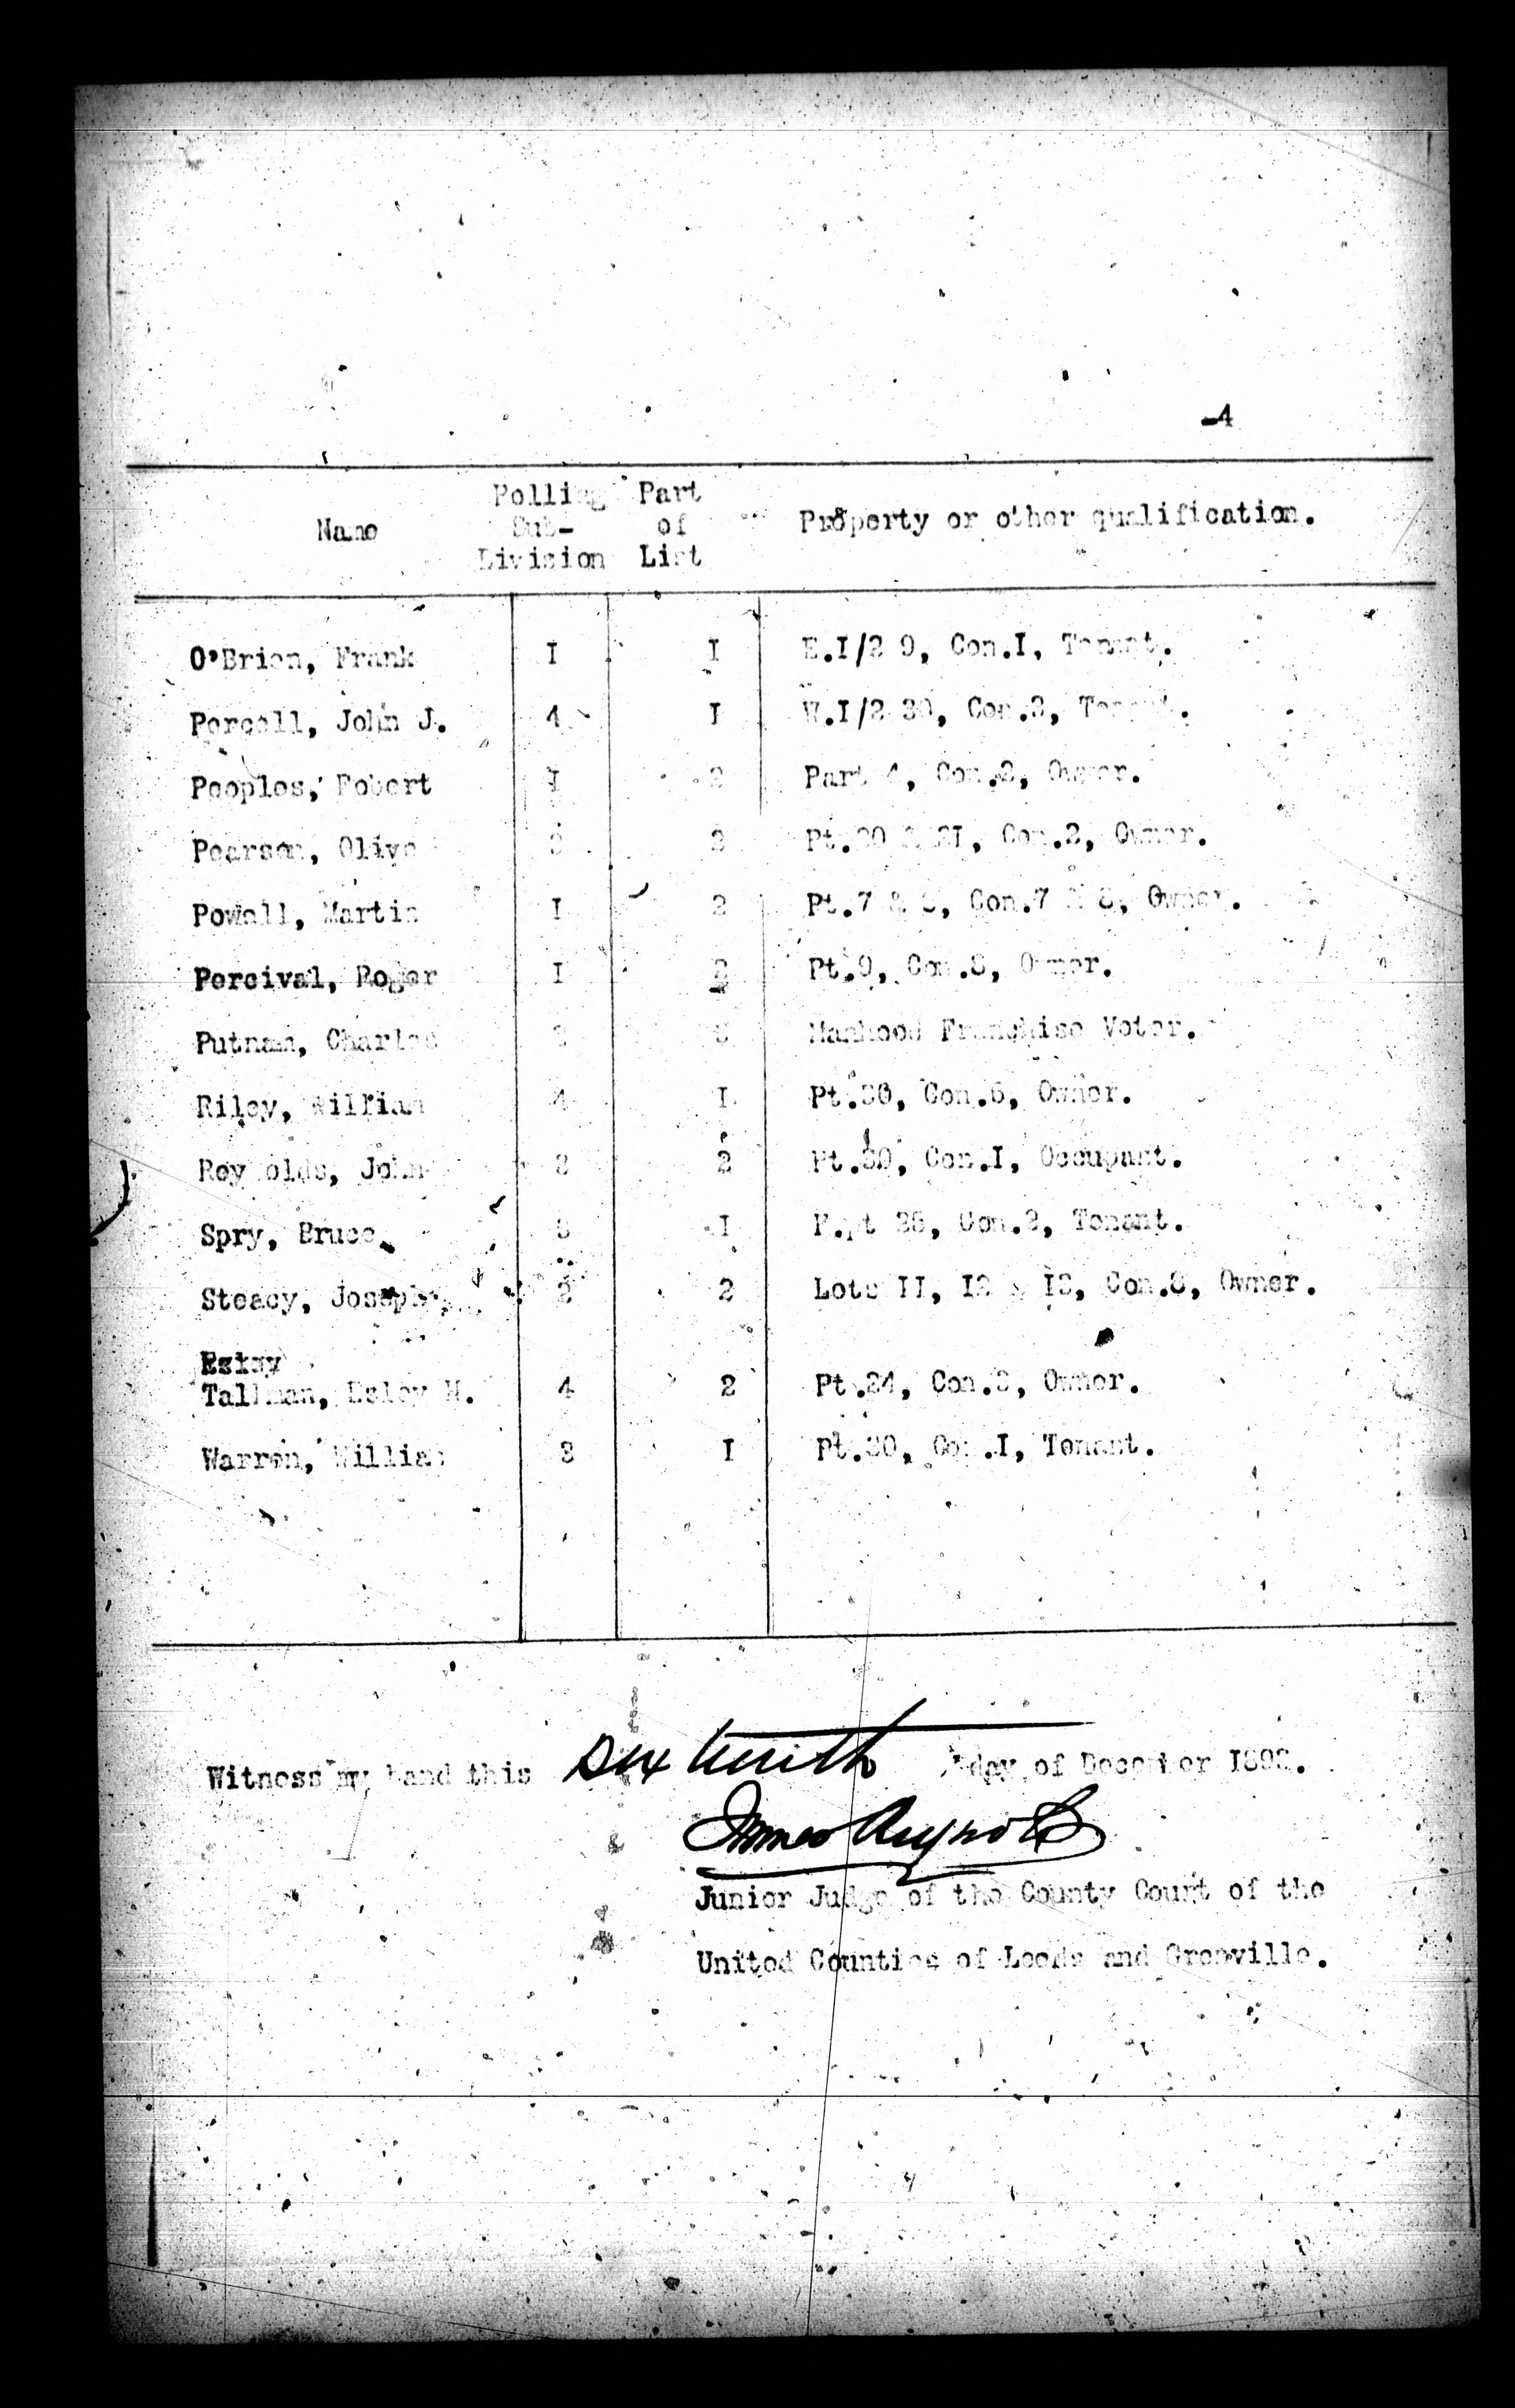 -4
Name Polling Sub- Division Part of List Property or other qualification.
O'Brien, Frank I I E.I/2 9, Con.I, Tenant.
Percell, John J. 4 I W.I/2 30, Con.3, Tenant.
Peoples, Robert I 2 Part 4, Con.2, Owner.
Pearson, Olive 2 Con.2, Owner.
Powell, Martin I 2 Pt.7 & 8, Con.7 & 8, Owner.
Percival, Roger I 2 Pt.9, Con.8, Owner.
Putnam, Charles 3 Manhood Franchise Voter.
Riley, William 4 I Pt.30, Con.5, Owner.
Reynolds, John 3 2 Pt.30, Con.I, Occupant.
Spry, Bruce 3 I pt 25, Con.2, Tenant.
Steacy, Joseph 2 2 Lots II, I2 & I3, Con.8, Owner.
Esley
Tallman, Esley N. 4 2 Pt.24, Con.3, Owner.
Warren, William 3 I Pt.30, Con.I, Tenant.
Witness my hand this Sixteenth day of December 1892.
James Reynolds
Junior Judge of the County Court of the
United Counties of Leeds and Grenville.